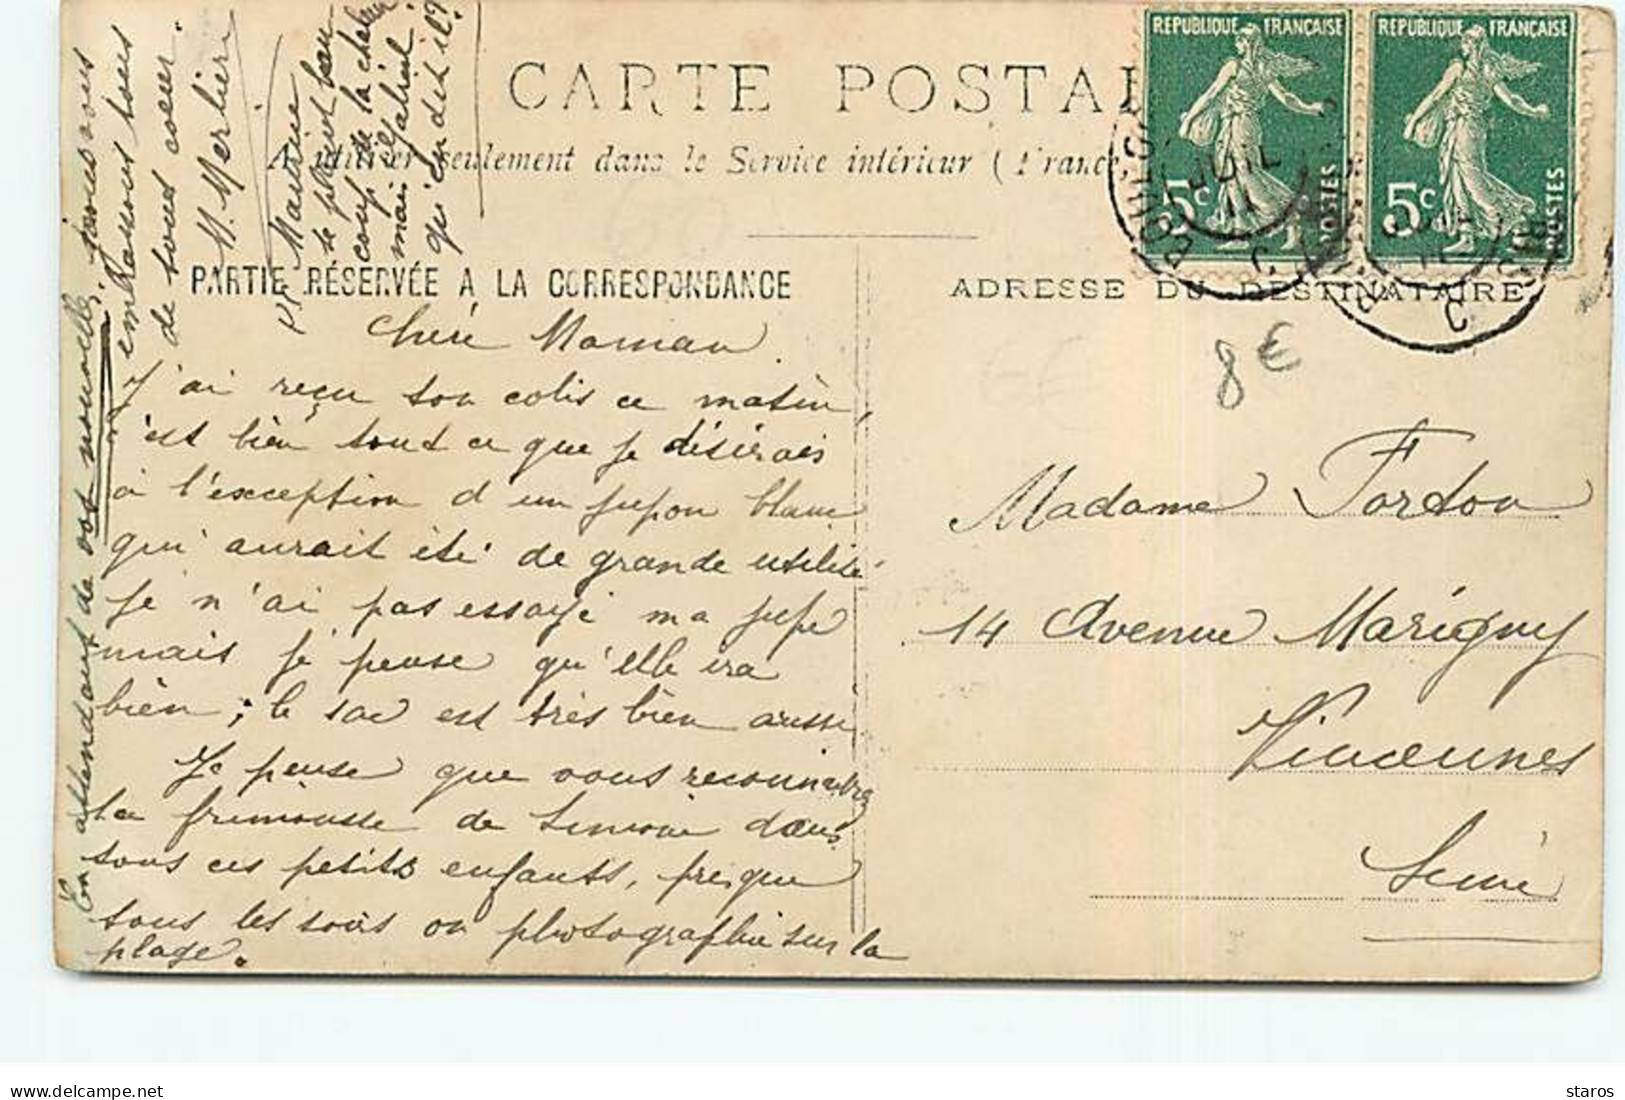 CARTE POSTAL
A utiliser seulement dans le Service intérieur (France
PARTIE RÉSERVÉE A LA CORRESPONDANCE
ADRESSE DU DESTINATAIRE
REPUBLIQUE FRANÇAISE
5c
POSTES
REPUBLIQUE FRANÇAISE
5c
POSTES
8€
Chère Maman.
J'ai reçu ton colis ce matin,
c'est bien tout ce que je désirais
à l'exception d'un jupon blanc
qui aurait été de grande utilité
je n'ai pas essayé ma jupe
mais je pense qu'elle ira
bien ; le sac est très bien aussi
Je pense que vous reconnaitrez
la frimousse de Simone dans
tous ces petits enfants, presque
tous les soirs on photographie sur la
plage.
En attendant de vos nouvelles, nous vous
embrassons tous
de tout cœur.
M. Merlier
Maurice
se plaint
coup de la chaleur
mais Gabriel
qu'en dit il?
Madame Fordou
14 Avenue Marigny
Vincennes
Seine
staros